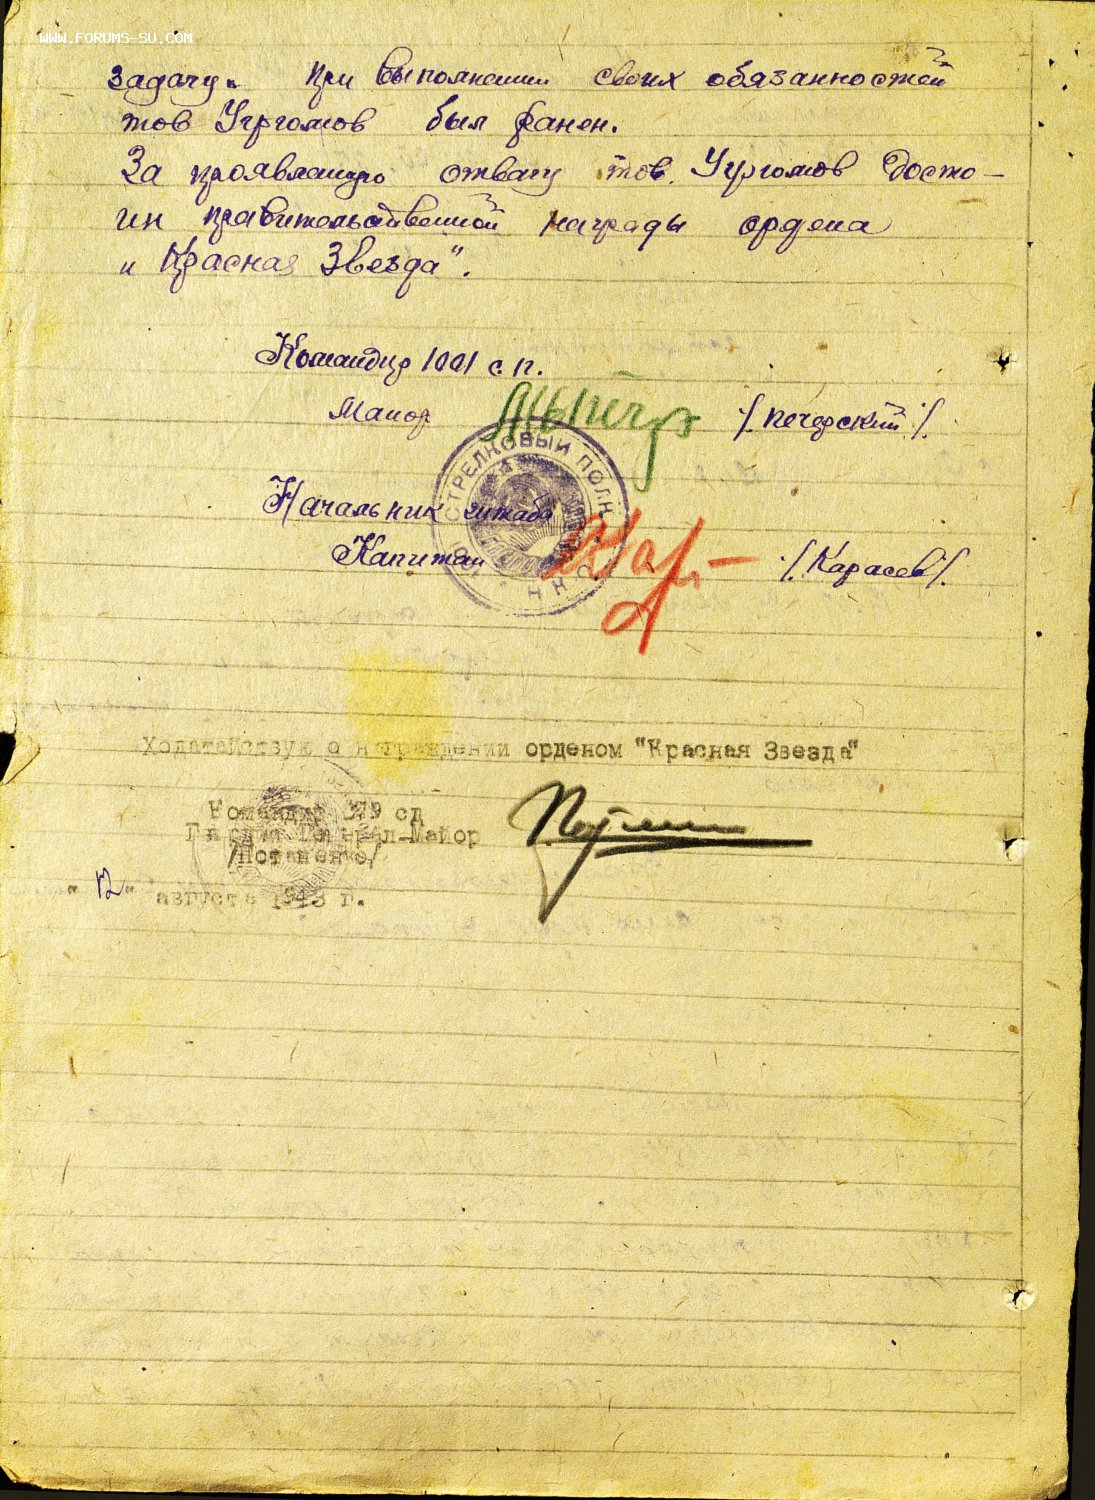 WWW.FORUMS-SU.COM
задачу. При выполнении своих обязанностей
тов был ранен.
За проявленную отвагу тов. Досто-
ин правительственной награды ордена
"Красная Звезда".
Командир 1001 с.п.
Майор /Печерский/.
СТРЕЛКОВЫЙ ПОЛК
Начальник штаба
Капитан /Карасев/.
Ходатайствую о награждении орденом "Красная Звезда"
Командир 379 сд
Гвардии Генерал-Майор
"12" августа 1943 г.